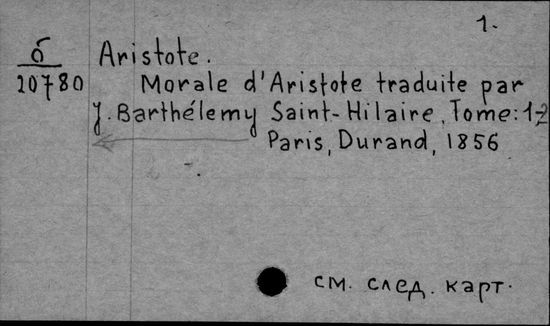 1.
б
20780
Aristote.
Morale d'Aristote traduite par
J. Barthélemy Saint-Hilaire, Tome: 1-2
Paris, Durand, 1856
см. след. карт.